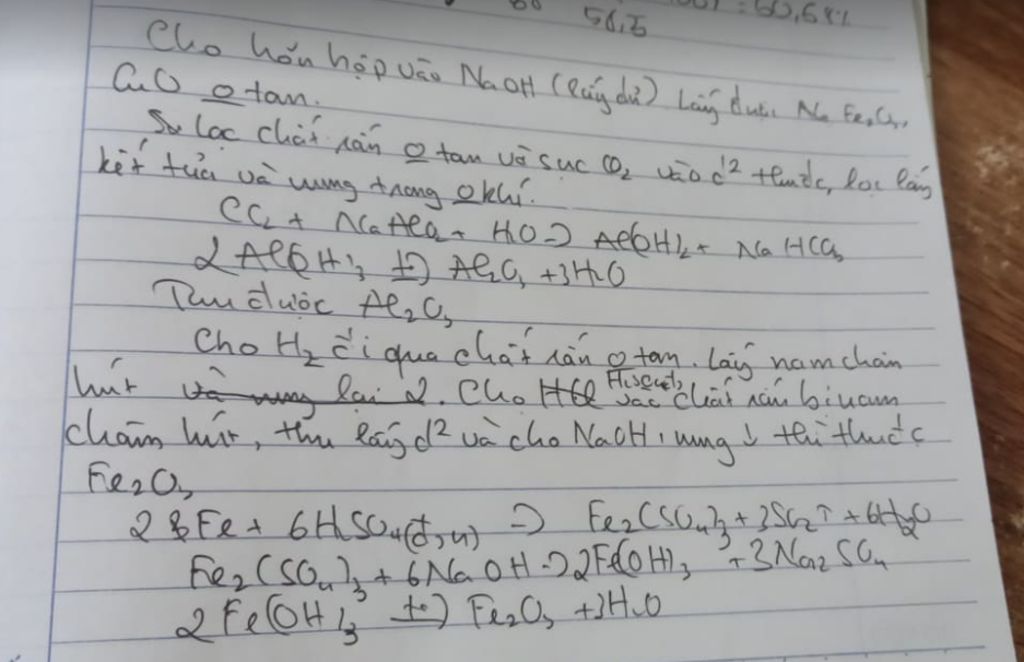 56,5 : 60,68%
Cho hỗn hợp vào NaOH (lấy dư) lấy được Fe2O3,
CuO o tan.
lọc chất rắn o tan và sục CO2 vào d² thu đc, lọc lấy
kết tủa và nung trong o khí.
CO2 + NaAlO2 + H2O => Al(OH)3 + NaHCO3
2Al(OH)3 t°> Al2O3 + 3H2O
Thu được Al2O3
Cho H2 đi qua chất rắn o tan. Lấy nam châm
hút và nung lại 2. Cho HCl H2SO4 vào chất rắn bị nam
châm hút, thu lấy d² và cho NaOH, nung ↓ thì thu đc
Fe2O3
2Fe + 6H2SO4(đ,n) => Fe2(SO4)3 + 3SO2↑ + 6H2O
Fe2(SO4)3 + 6NaOH -> 2Fe(OH)3 + 3Na2SO4
2Fe(OH)3 t°> Fe2O3 + 3H2O